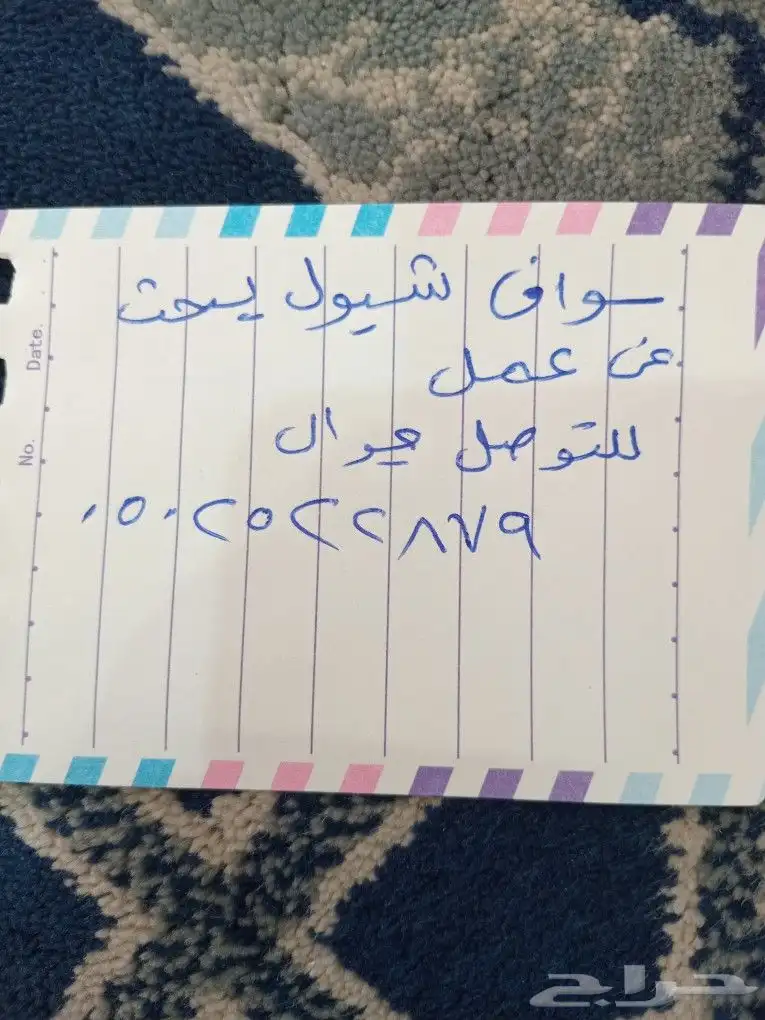 سواق شيول يبحث
عن عمل
للتوصل جوال
٠٥٠٢٥٢٢٨٧٩
No. Date.
حراج